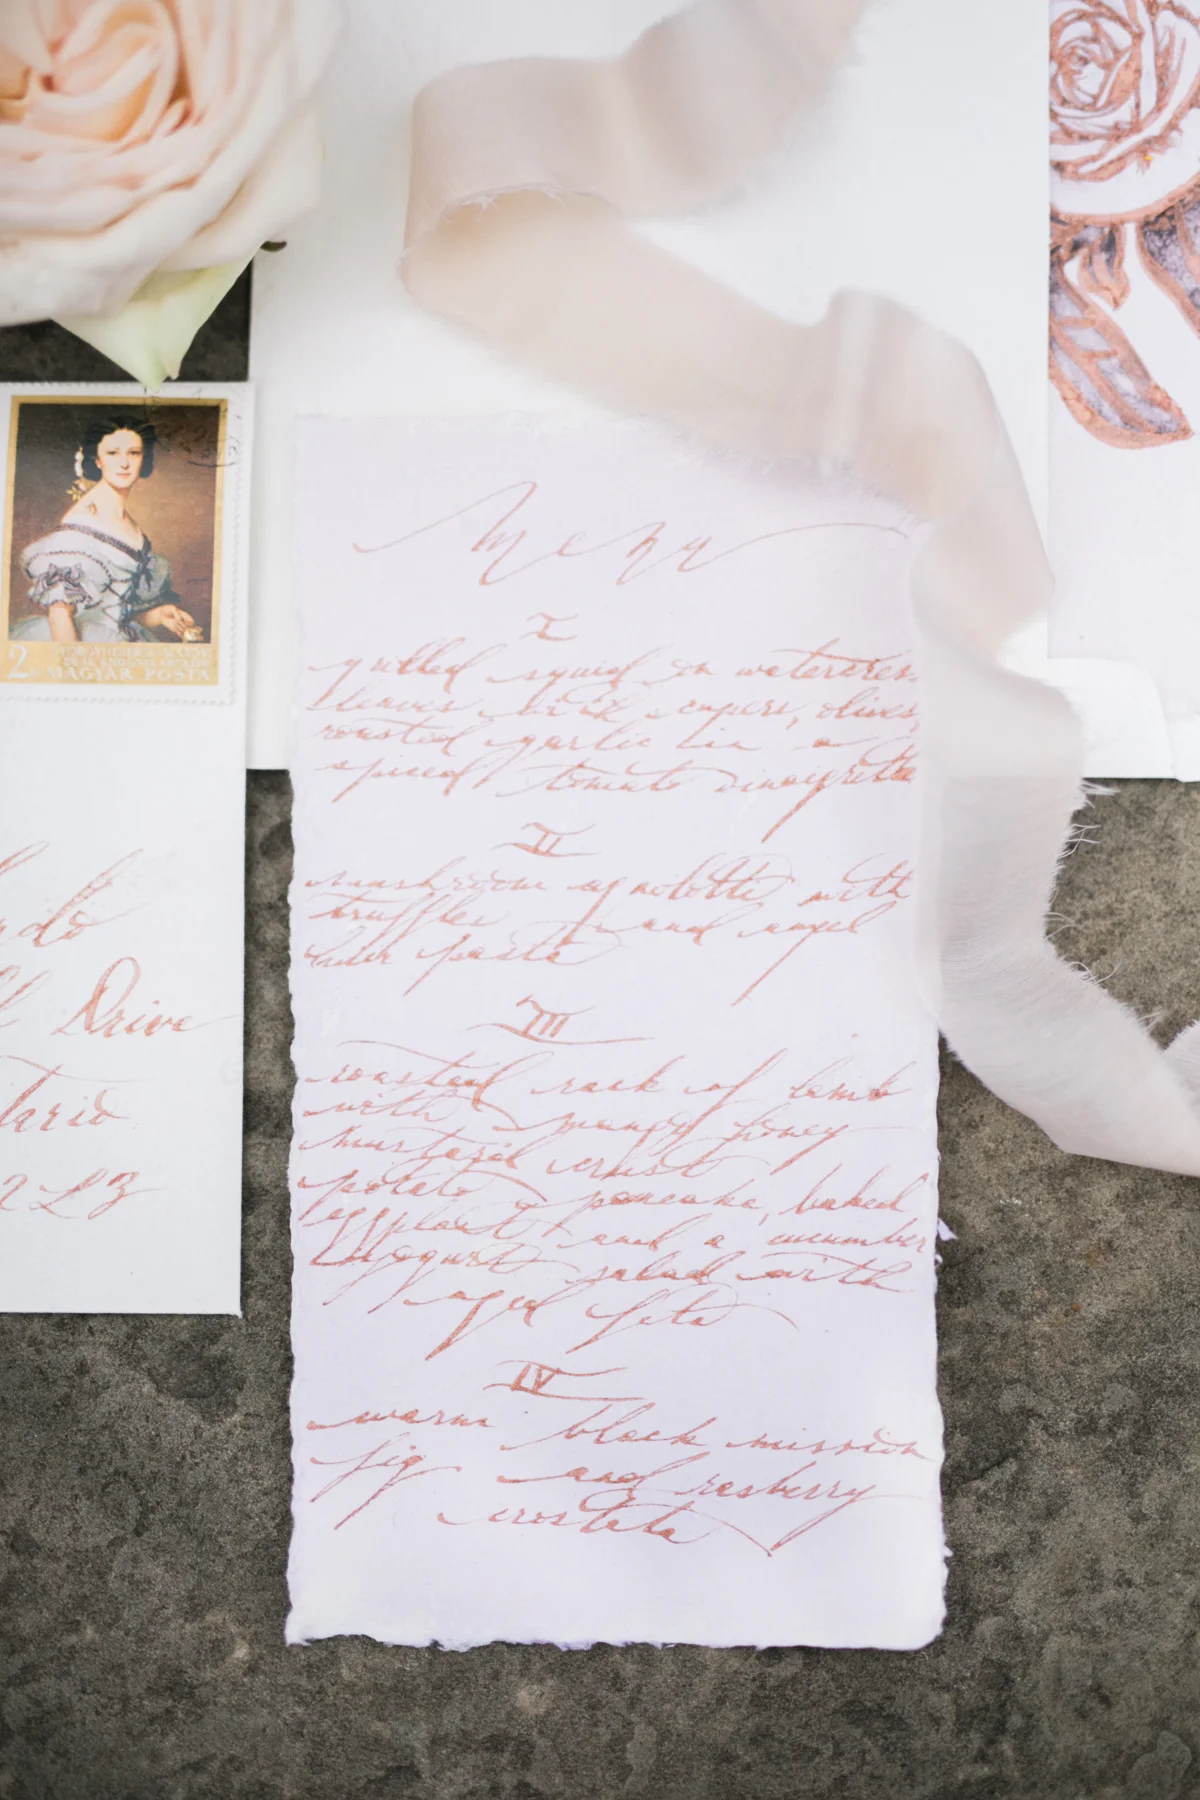 Menu
I
grilled squid on watercres
leaves with capers, olives,
roasted garlic in a
spiced tomato vinaigrette
II
mushroom agnolotti with
truffles and angel
hair pasta
III
roasted rack of lamb
with honey
mustard crust
potato pancake, baked
eggplant and a cucumber
yogurt salad with
aged feta
IV
warm black mission
fig and rasberry
crostata
2
MAGYAR POSTA
Drive
tario
2L3